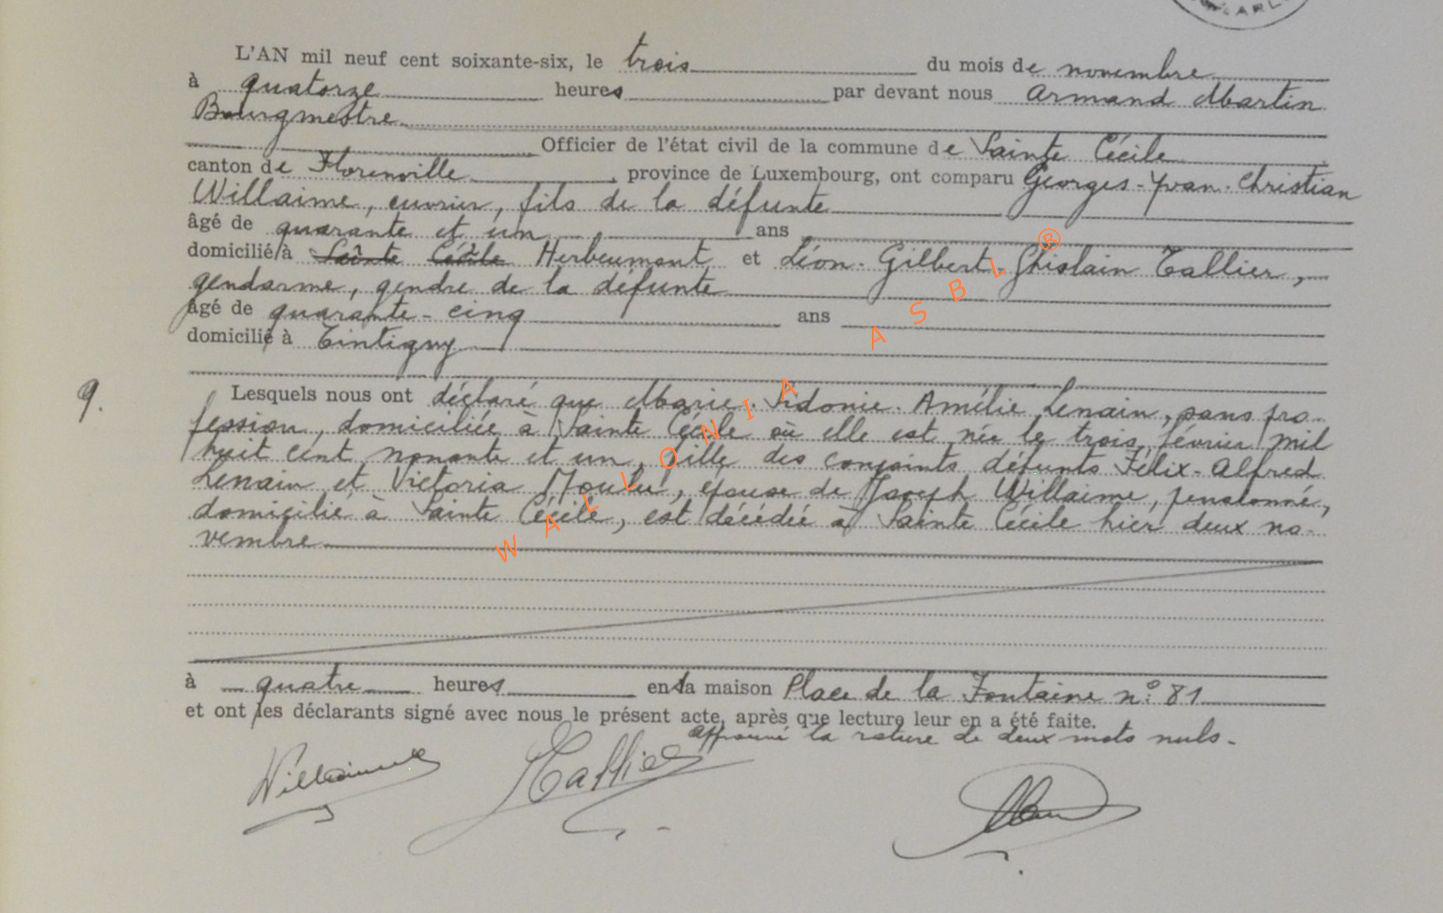 L'AN mil neuf cent soixante-six, le trois du mois de novembre
à quatorze heures par devant nous Armand Martin
Bourgmestre
Officier de l'état civil de la commune de Sainte Cécile
canton de Florenville, province de Luxembourg, ont comparu Georges-Yvan-Christian
Willaime, ouvrier, fils de la défunte
âgé de quarante et un ans
domicilié à Sainte Cécile Herbeumont et Léon-Gilbert-Ghislain Tallier,
gendarme, gendre de la défunte
âgé de quarante-cinq ans
domicilié à Tintigny
9. Lesquels nous ont déclaré que Marie-Sidonie-Amélie Lenain, sans pro-
fession, domiciliée à Sainte Cécile où elle est née le trois février mil
huit cent nonante et un, fille des conjoints défunts Félix-Alfred
Lenain et Victoria Moulu, épouse de Joseph Willaime, pensionné,
domicilié à Sainte Cécile, est décédée à Sainte Cécile hier deux no-
vembre
à quatre heures en la maison Place de la Fontaine n° 81
et ont les déclarants signé avec nous le présent acte, après que lecture leur en a été faite.
Approuvé la rature de deux mots nuls.
Willaime Tallier
WALLONIA ASBL ®